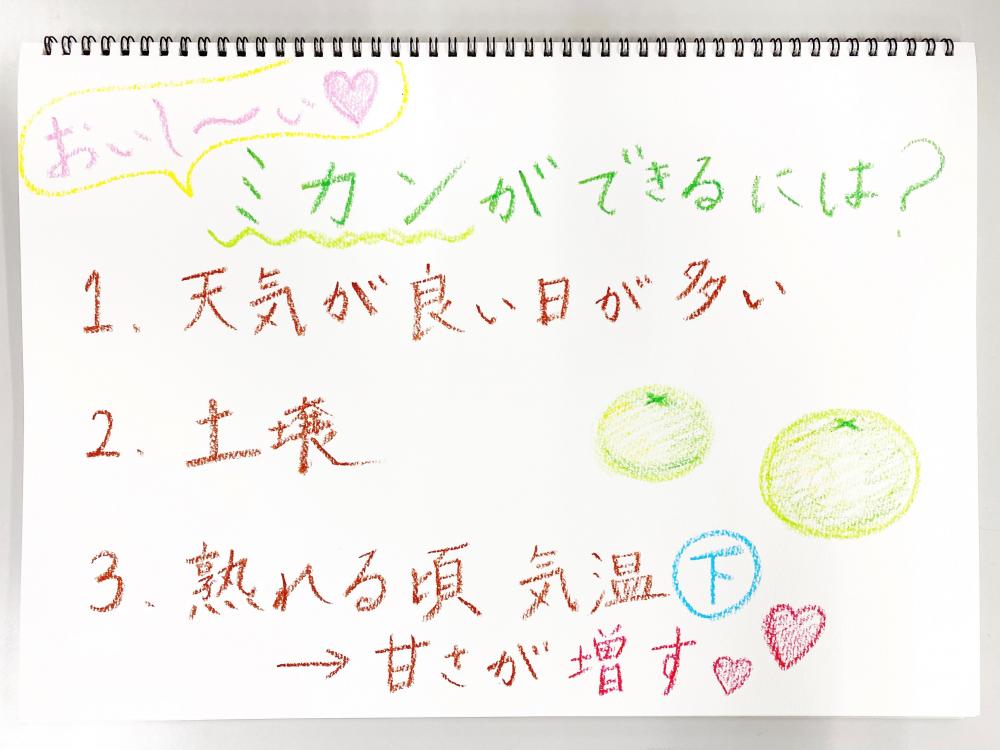 おいし〜い♡
ミカンができるには?
1. 天気が良い日が多い
2. 土壌
3. 熟れる頃 気温下
→甘さが増す